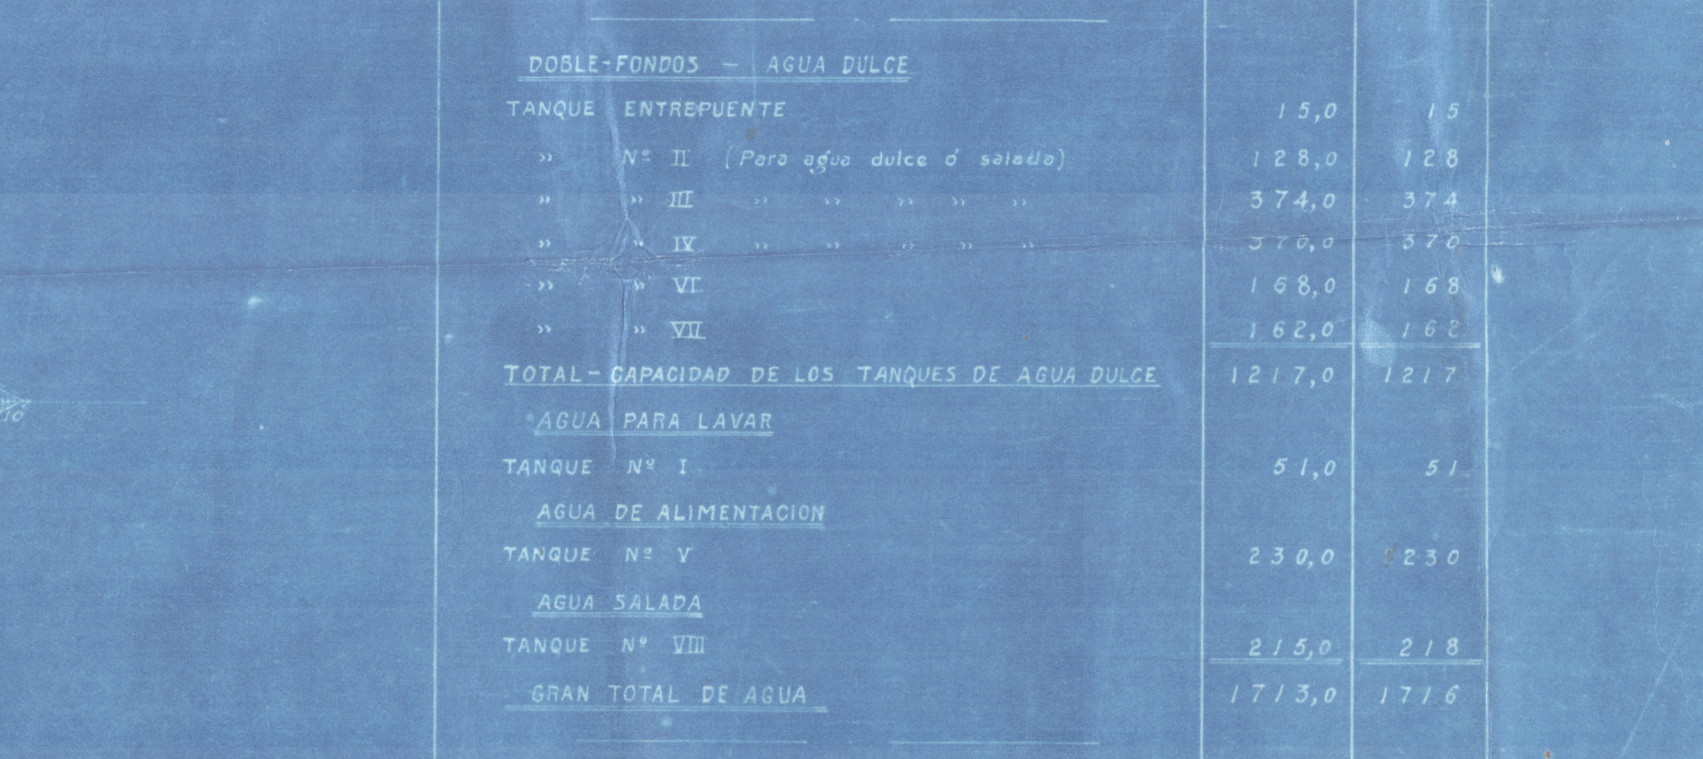 DOBLE-FONDOS — AGUA DULCE
TANQUE ENTREPUENTE 15,0 15
» Nº II (Para agua dulce ó salada) 128,0 128
» » III » » » » » 374,0 374
» » IV » » » » » 370,0 370
» » VI 168,0 168
» » VII 162,0 162
TOTAL-CAPACIDAD DE LOS TANQUES DE AGUA DULCE 1217,0 1217
AGUA PARA LAVAR
TANQUE Nº I 51,0 51
AGUA DE ALIMENTACION
TANQUE Nº V 230,0 230
AGUA SALADA
TANQUE Nº VIII 215,0 218
GRAN TOTAL DE AGUA 1713,0 1716